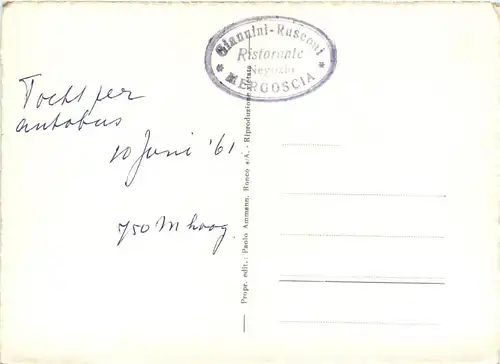 Tocht per
autobus
10 Juni '61
750 M hoog.
Giannini-Rusconi
Ristorante
Negozio
* MERGOSCIA *
Propr. edit.: Paolo Ammann, Ronco s/A. - Riproduzione vietata